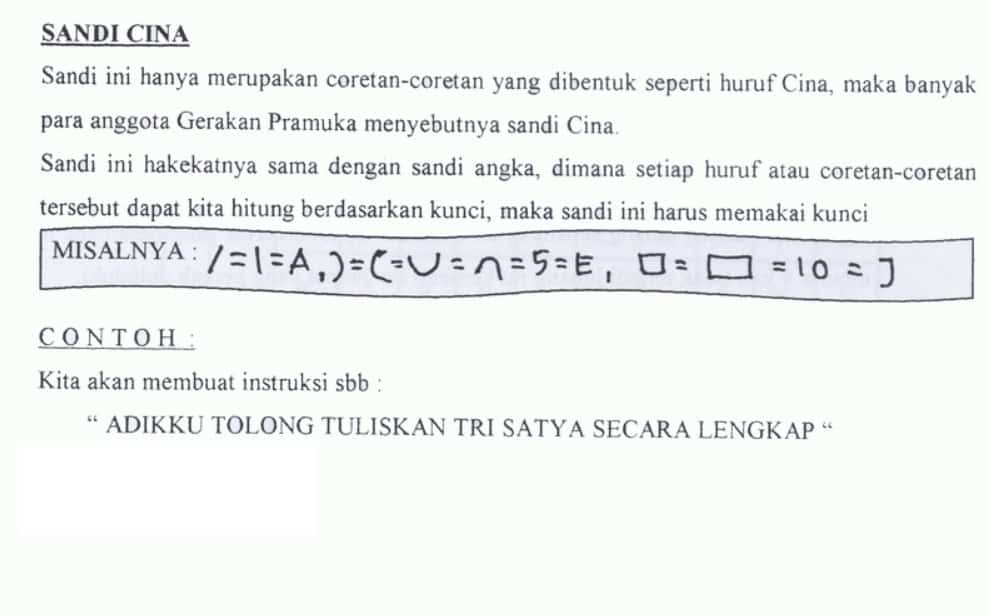 SANDI CINA
Sandi ini hanya merupakan coretan-coretan yang dibentuk seperti huruf Cina, maka banyak
para anggota Gerakan Pramuka menyebutnya sandi Cina.
Sandi ini hakekatnya sama dengan sandi angka, dimana setiap huruf atau coretan-coretan
tersebut dapat kita hitung berdasarkan kunci, maka sandi ini harus memakai kunci
MISALNYA : / = 1 = A, ) = ( = ∪ = ∩ = 5 = E, □ = ▭ = 10 = J
C O N T O H :
Kita akan membuat instruksi sbb :
“ ADIKKU TOLONG TULISKAN TRI SATYA SECARA LENGKAP “